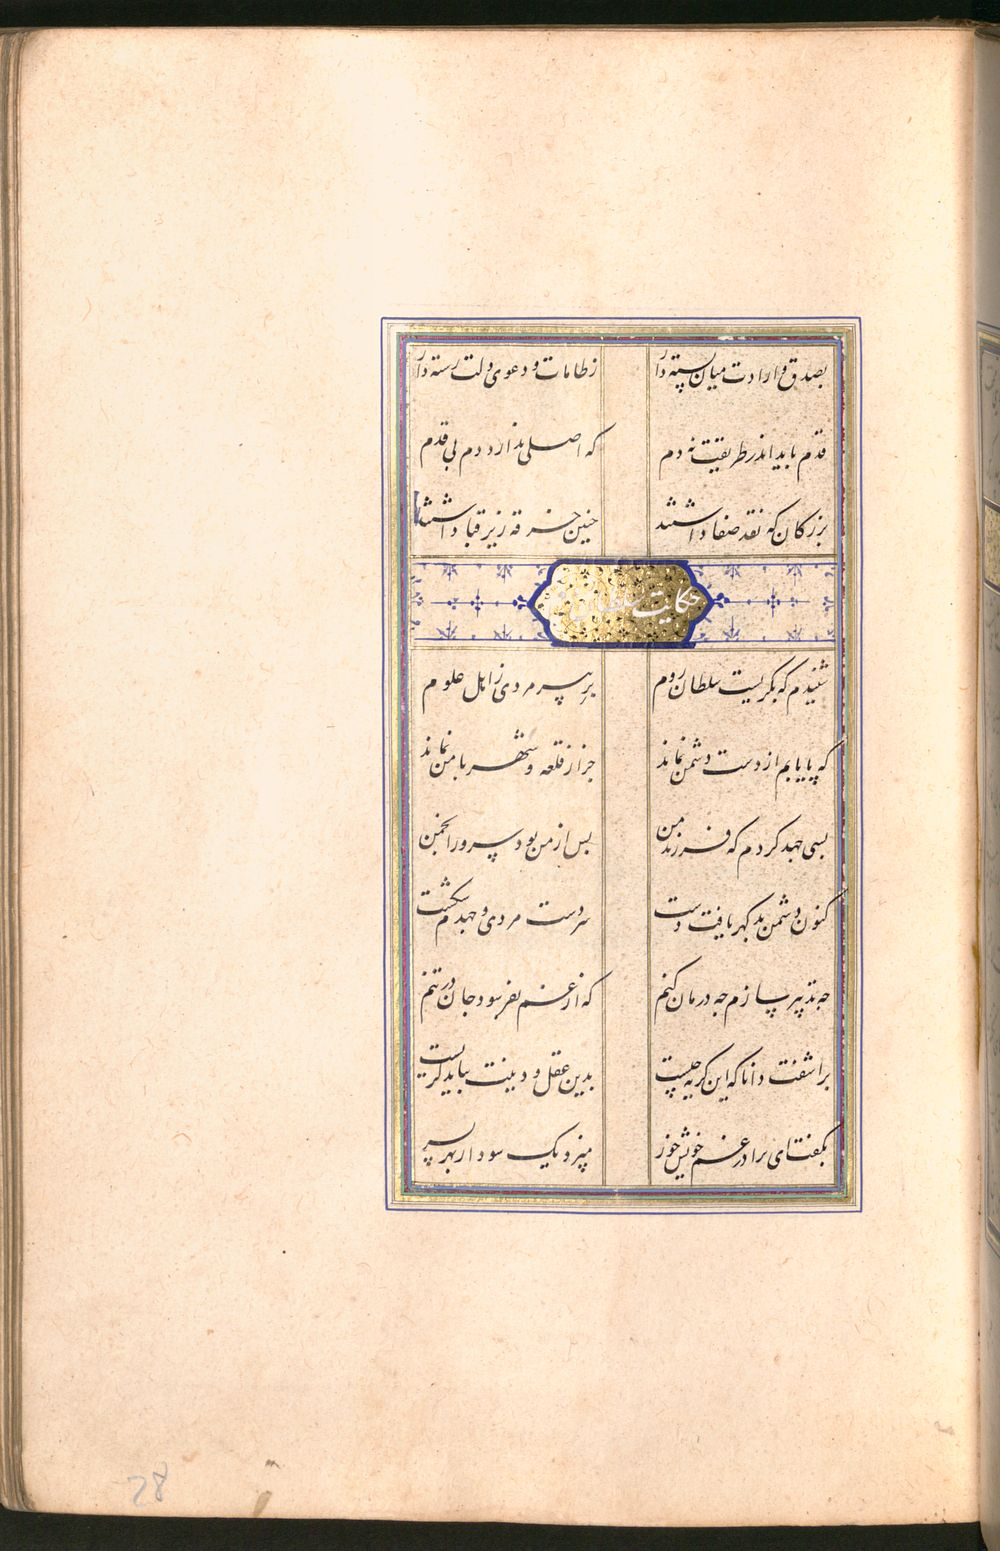 بصدق و ارادت میان بسته دار ز طامات و دعوی ولت رسته دار
قدم باید اندر طریقیت نه دم که اصلی ندارد دم بی قدم
بزرکان که نقد صفا داشتند چنین خرقه زیر قبا داشتند
حکایت سلطان روم
شنیدم که بکریست سلطان روم بر پیر مردی ز اهل علوم
که پایابم از دست دشمن نماند جز از قلعه و شهر با من نماند
بسی جهد کردم که فرزند من بس از من بود سرور انجمن
کنون دشمن بد کهر یافت دست سر دست مردی و جهدم شکست
جه تدبیر سازم جه درمان کنم که از غم بفرسود جان در تنم
براشفت دانا که این کریه چیست بدین عقل و دینت بباید کریست
بکفت ای برادر غم خویش خور
28